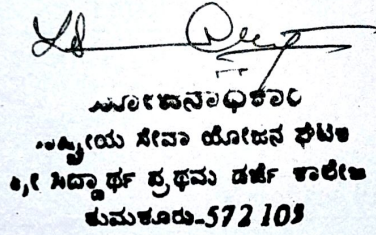 ಯೋಜನಾಧಿಕಾರಿ
ರಾಷ್ಟ್ರೀಯ ಸೇವಾ ಯೋಜನ ಘಟಕ
ಶ್ರೀ ಸಿದ್ಧಾರ್ಥ ಪ್ರಥಮ ದರ್ಜೆ ಕಾಲೇಜು
ತುಮಕೂರು-572 103